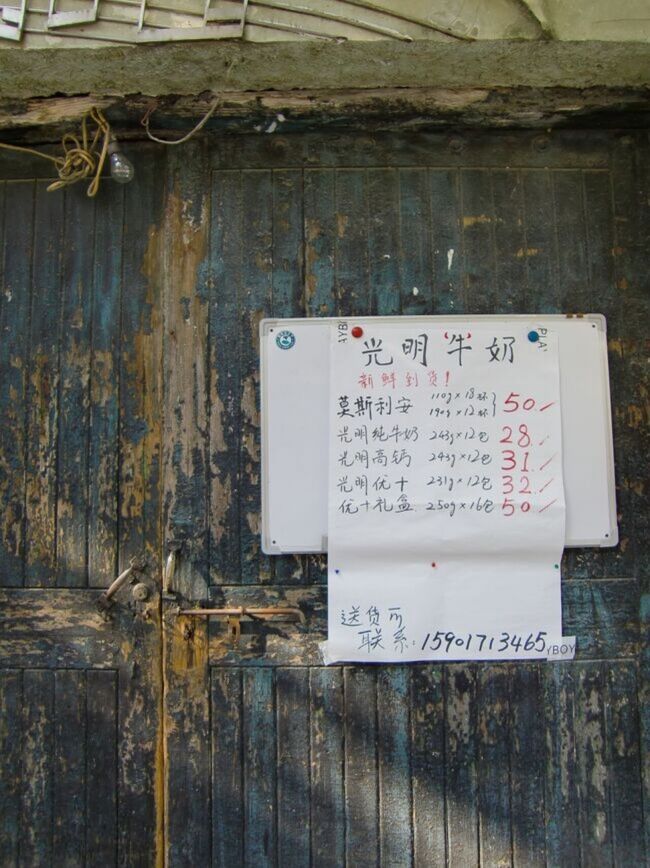 光明牛奶
新鲜到货！
莫斯利安 110g×18杯 50.-
190g×12杯
光明纯牛奶 243g×12包 28.-
光明高钙 243g×12包 31.-
光明优十 231g×12包 32.-
优十礼盒 250g×16包 50.-
送货可
联系：15901713465
YBOY